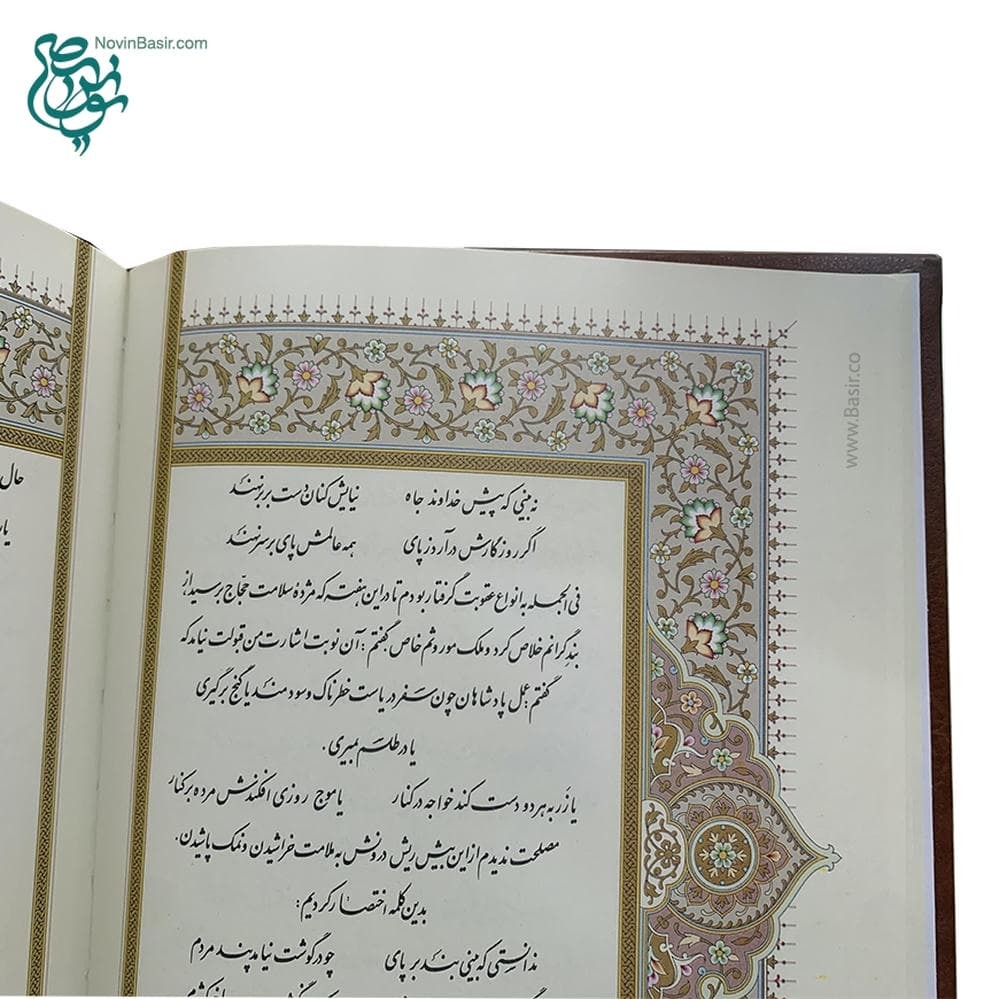 NovinBasir.com
نوین بصیر
www.Basir.co
حال
نه بینی که پیش خداوند جاه نیایش کنان دست بر بر نهند
اگر روزگارش درآرد ز پای همه عالمش پای بر سر نهند
فی الجمله به انواع عقوبت گرفتار بودم تا در این هفته که مژدهٔ سلامت حجّاج برسید، از
بند گرانم خلاص کرد و ملک موروثم خاص گفتم: آن نوبت اشارت من قبولت نیامد که
گفتم: عمل پادشاهان چون سفر دریاست خطرناک و سودمند یا گنج برگیری
یا در طلسم بمیری.
یا زر به هر دو دست کند خواجه در کنار یا موج روزی افکندش مرده بر کنار
مصلحت ندیدم از این بیش ریش درونش به ملامت خراشیدن و نمک پاشیدن.
بدین کلمه اختصار کردیم:
ندانستی که بینی بند بر پای چو در گوشت نیامد پند مردم